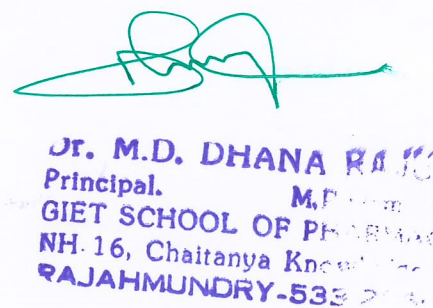 Dr. M.D. DHANA RAJU
Principal.
GIET SCHOOL OF
NH-16, Chaitanya
RAJAHMUNDRY-533